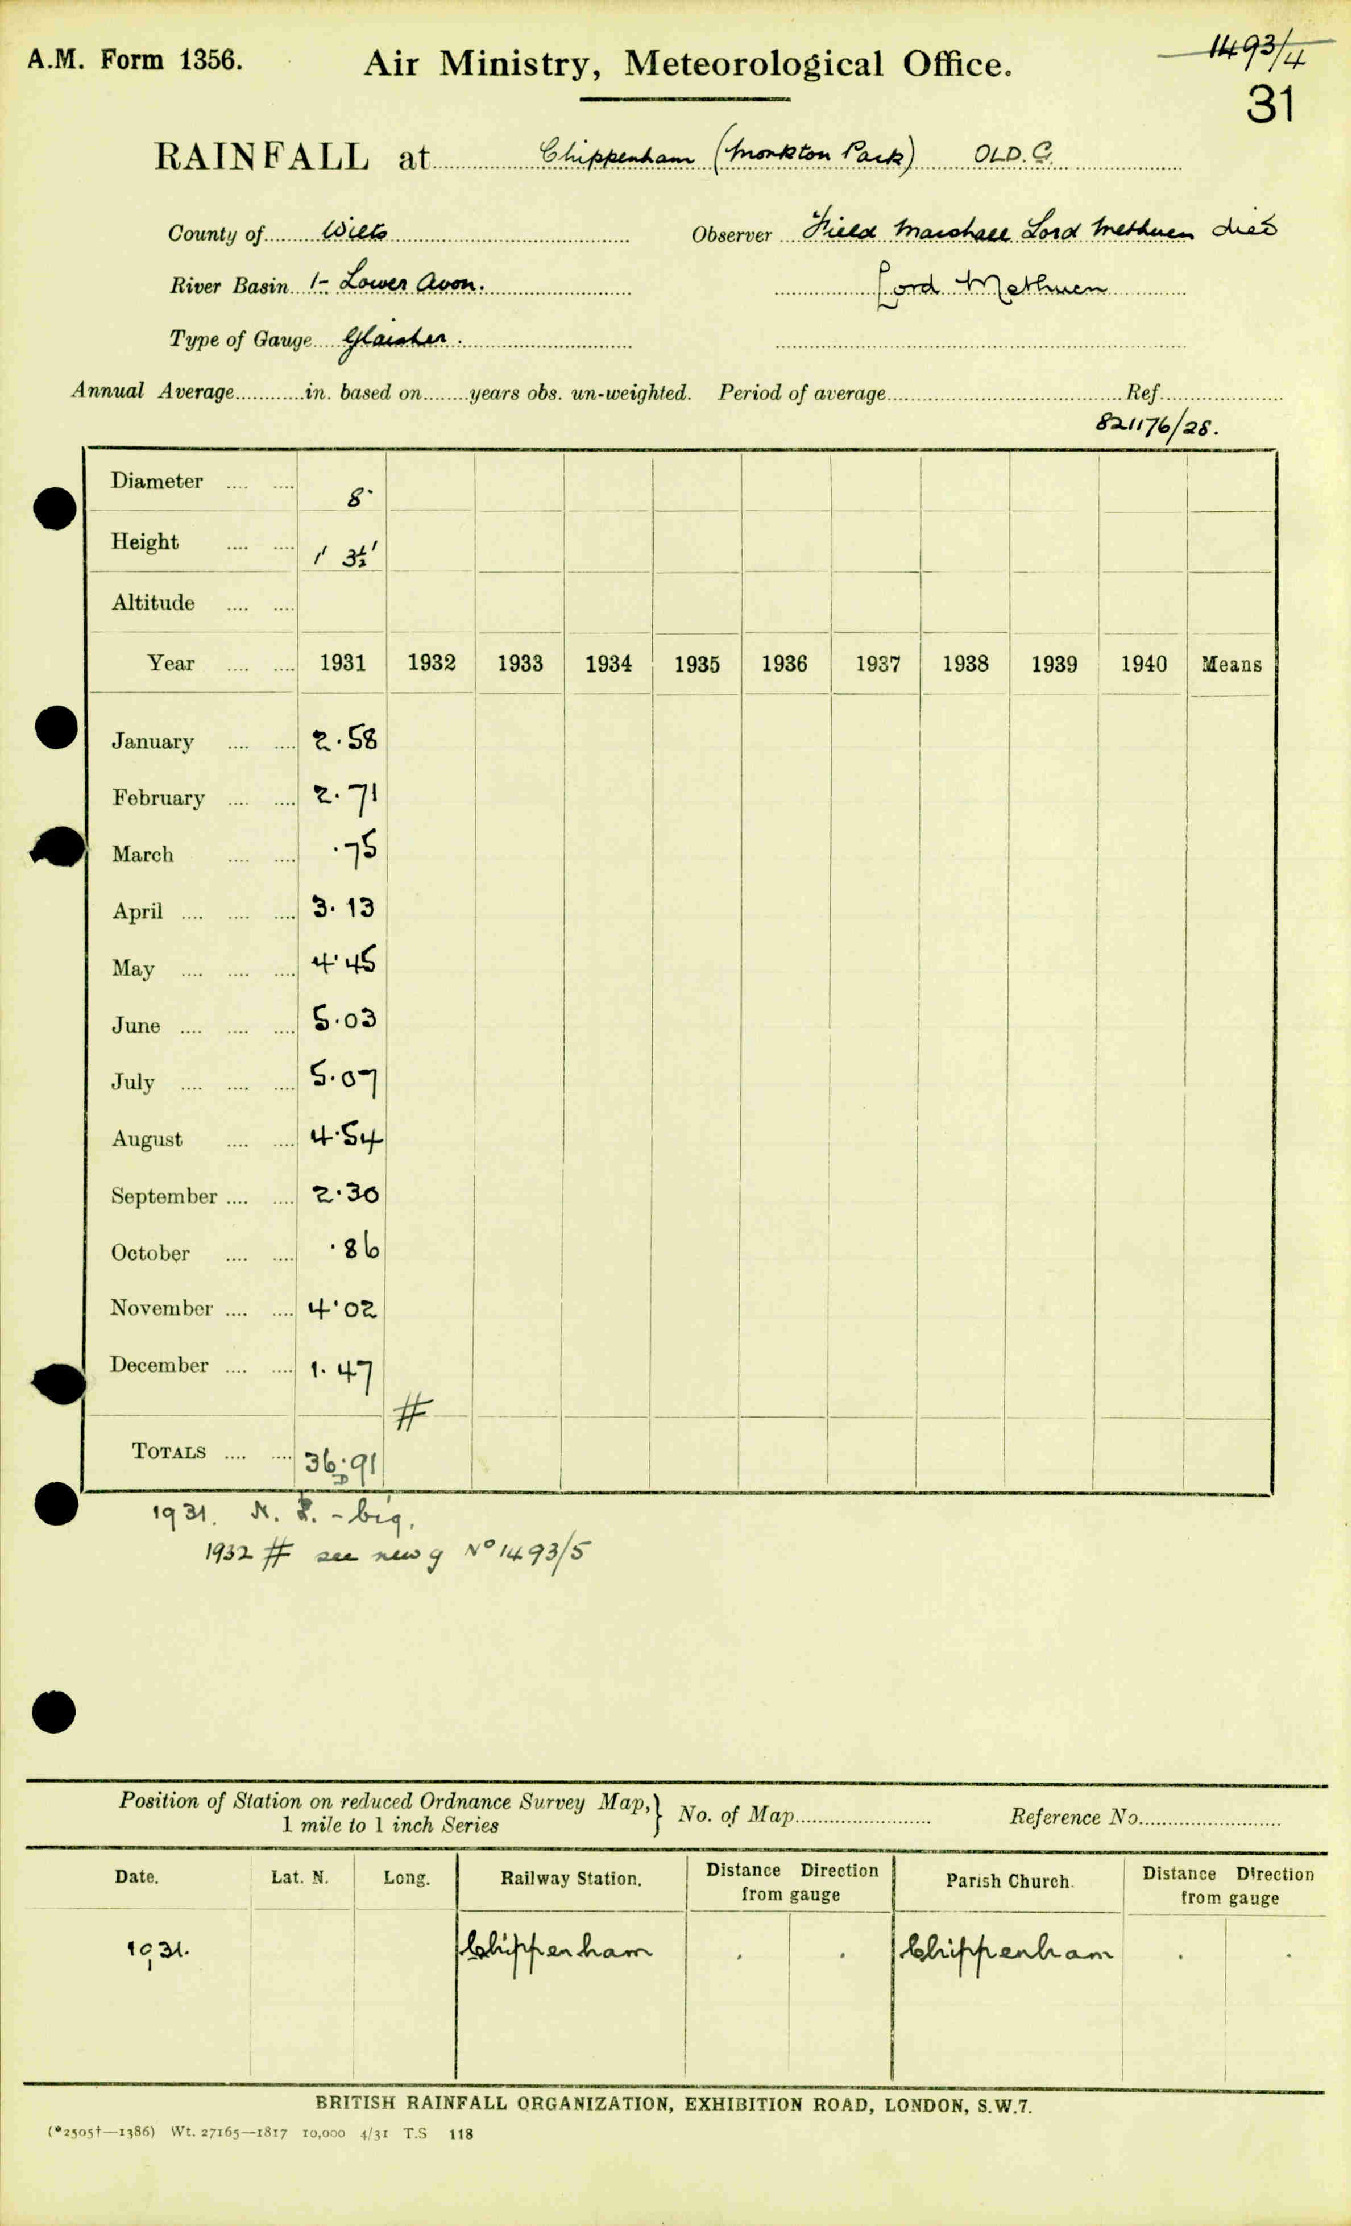 A.M. Form 1356.
Air Ministry, Meteorological Office.
1493/4
31
RAINFALL at Chippenham (Monkton Park) OLD. G.
County of Wilts Observer Field Marshall Lord Methuen died
River Basin 1- Lower Avon. Lord Methuen
Type of Gauge Glaisher.
Annual Average in. based on years obs. un-weighted. Period of average Ref.
821176/28.
Diameter 8"
Height 1' 3½"
Altitude
Year 1931 1932 1933 1934 1935 1936 1937 1938 1939 1940 Means
January 2.58
February 2.71
March .75
April 3.13
May 4.45
June 5.03
July 5.07
August 4.54
September 2.30
October .86
November 4.02
December 1.47
#
TOTALS 36.91
D
1931. - big.
1932 # see new g No 1493/5
Position of Station on reduced Ordnance Survey Map, } No. of Map Reference No.
1 mile to 1 inch Series
Date. Lat. N. Long. Railway Station. Distance Direction from gauge Parish Church. Distance Direction from gauge
1931. Chippenham . . Chippenham . .
BRITISH RAINFALL ORGANIZATION, EXHIBITION ROAD, LONDON, S.W.7.
(*2505†—1386) Wt. 27165—1817 10,000 4/31 T.S 118